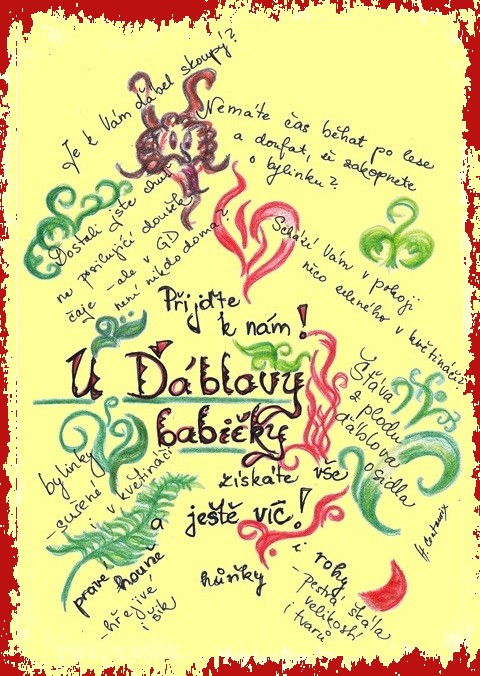 Je k Vám ďábel skoupý?
Nemáte čas běhat po lese
a doufat, že zakopnete
o bylinku?
Dostali jste chuť
na posilující doušek
čaje - ale v GD
není nikdo doma?
Schází Vám v pokoji
něco zeleného v květináči?
Přijďte
k nám!
U Ďáblovy
babičky
získáte vše
a ještě víc!
Šťáva
z plodu
ďáblova
osidla
bylinky
- sušené
i v květináči
pravé houně
- hřejivé
i šik
hůlky
i rohy
- pestrá škála
velikostí
i tvarů